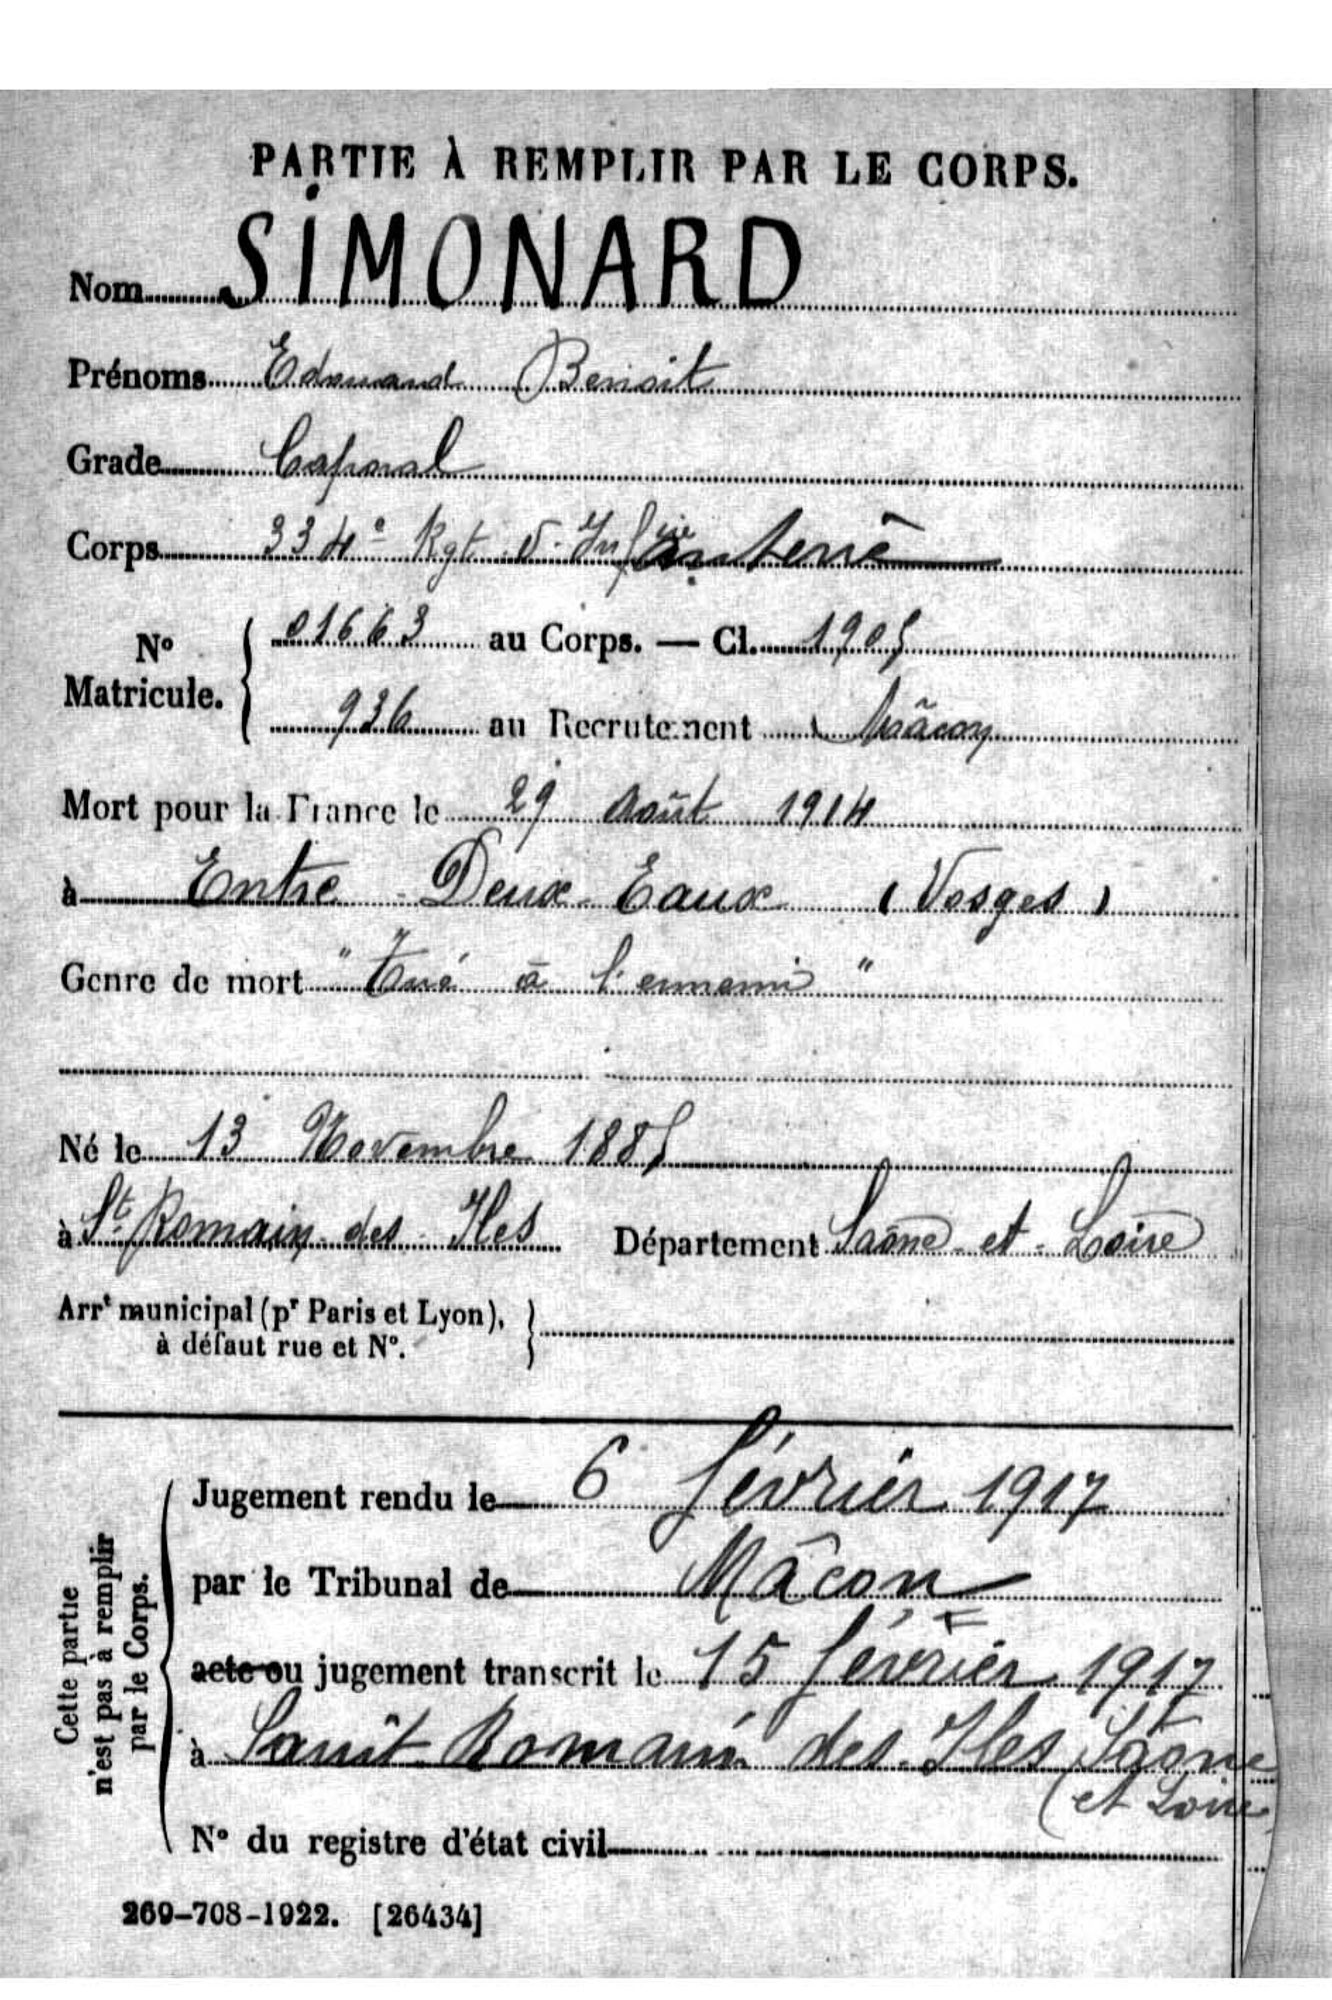 PARTIE À REMPLIR PAR LE CORPS.
Nom SIMONARD
Prénoms Edouard Benoit
Grade Caporal
Corps 334e Rgt d'Infanterie
No Matricule. 01663 au Corps. — Cl. 1905
936 au Recrutement Mâcon
Mort pour la France le 29 Août 1914
à Entre Deux Eaux (Vosges)
Genre de mort "Tué à l'ennemi"
Né le 13 Novembre 1885
à St Romain des Iles Département Saône et Loire
Arrt municipal (pr Paris et Lyon),
à défaut rue et No.
Cette partie
n'est pas à remplir
par le Corps.
Jugement rendu le 6 février 1917
par le Tribunal de Mâcon
acte ou jugement transcrit le 15 février 1917
à Saint Romain des Iles Saône
(et Loire)
No du registre d'état civil
269-708-1922. [26434]